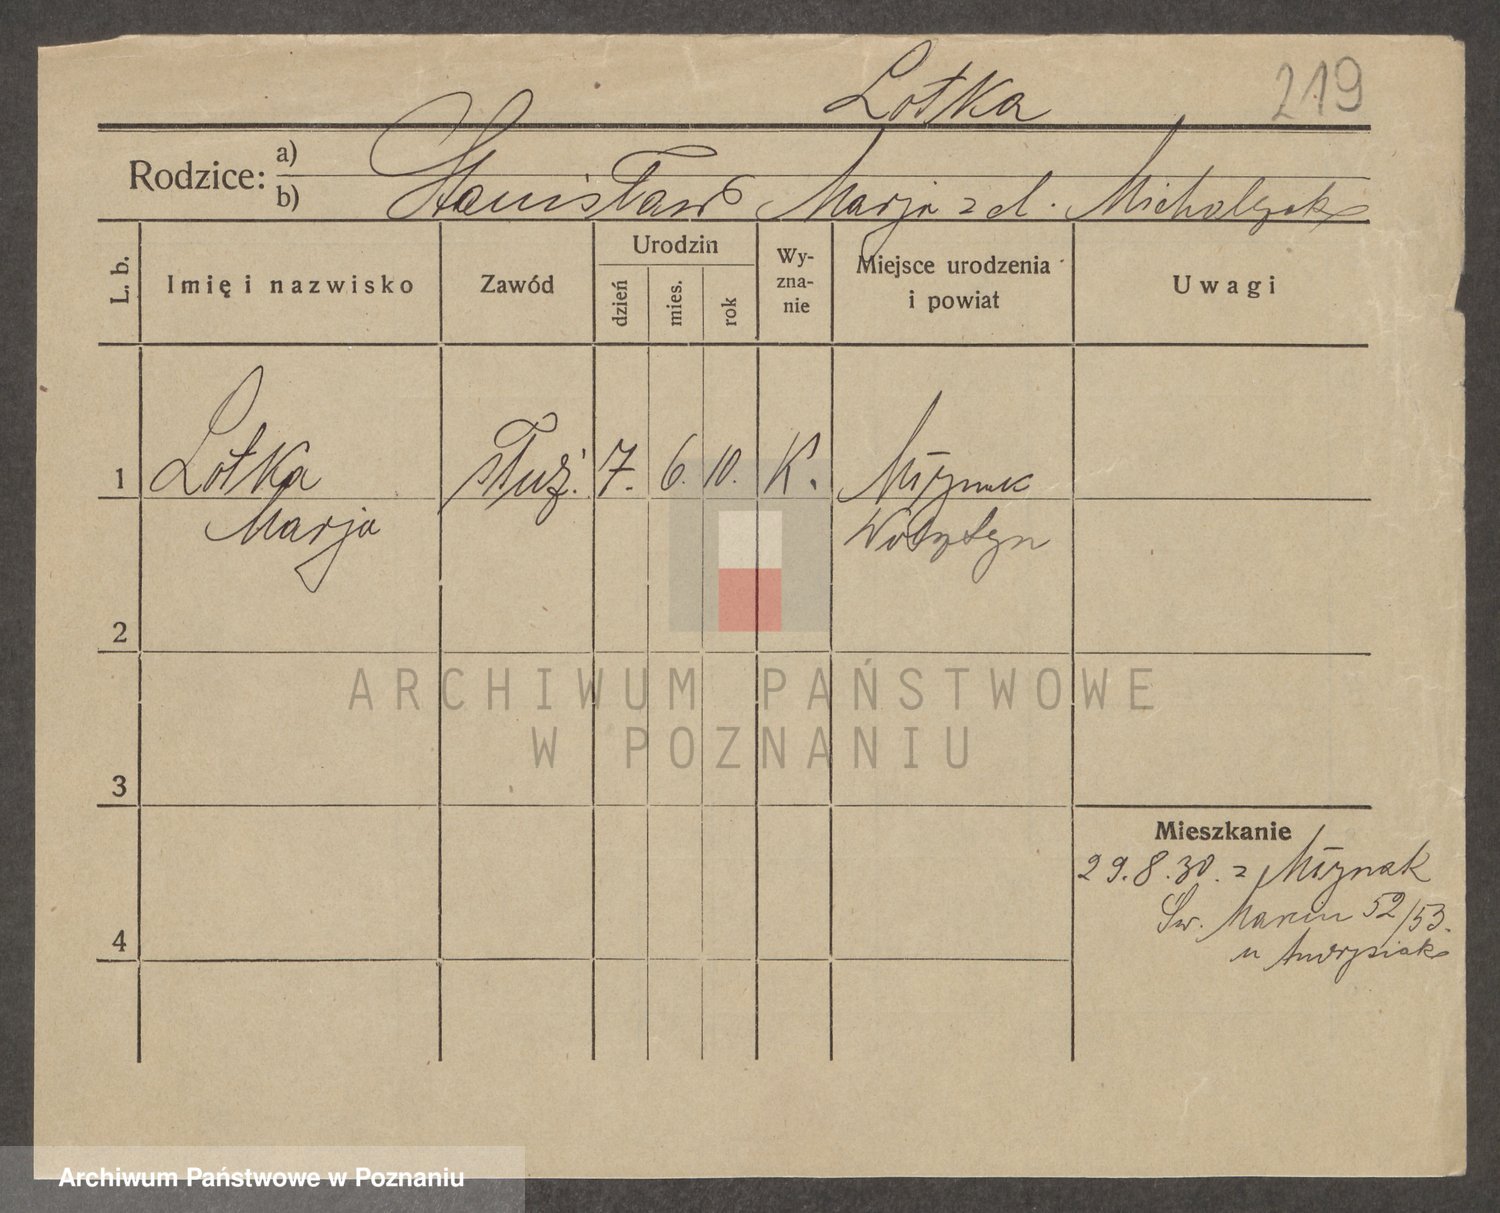 Lotka 219
Rodzice: a)
b) Stanisław Marja z d. Michalczak
L. b. Imię i nazwisko Zawód Urodzin dzień mies. rok Wy-zna-nie Miejsce urodzenia i powiat Uwagi
1 Lotka służ. 7. 6. 10. K. Młynek
Marja Wolsztyn
2
ARCHIWUM PAŃSTWOWE
W POZNANIU
3
Mieszkanie
29.8.30. z Młynek
Św. Marcin 52/53.
4
u
Archiwum Państwowe w Poznaniu